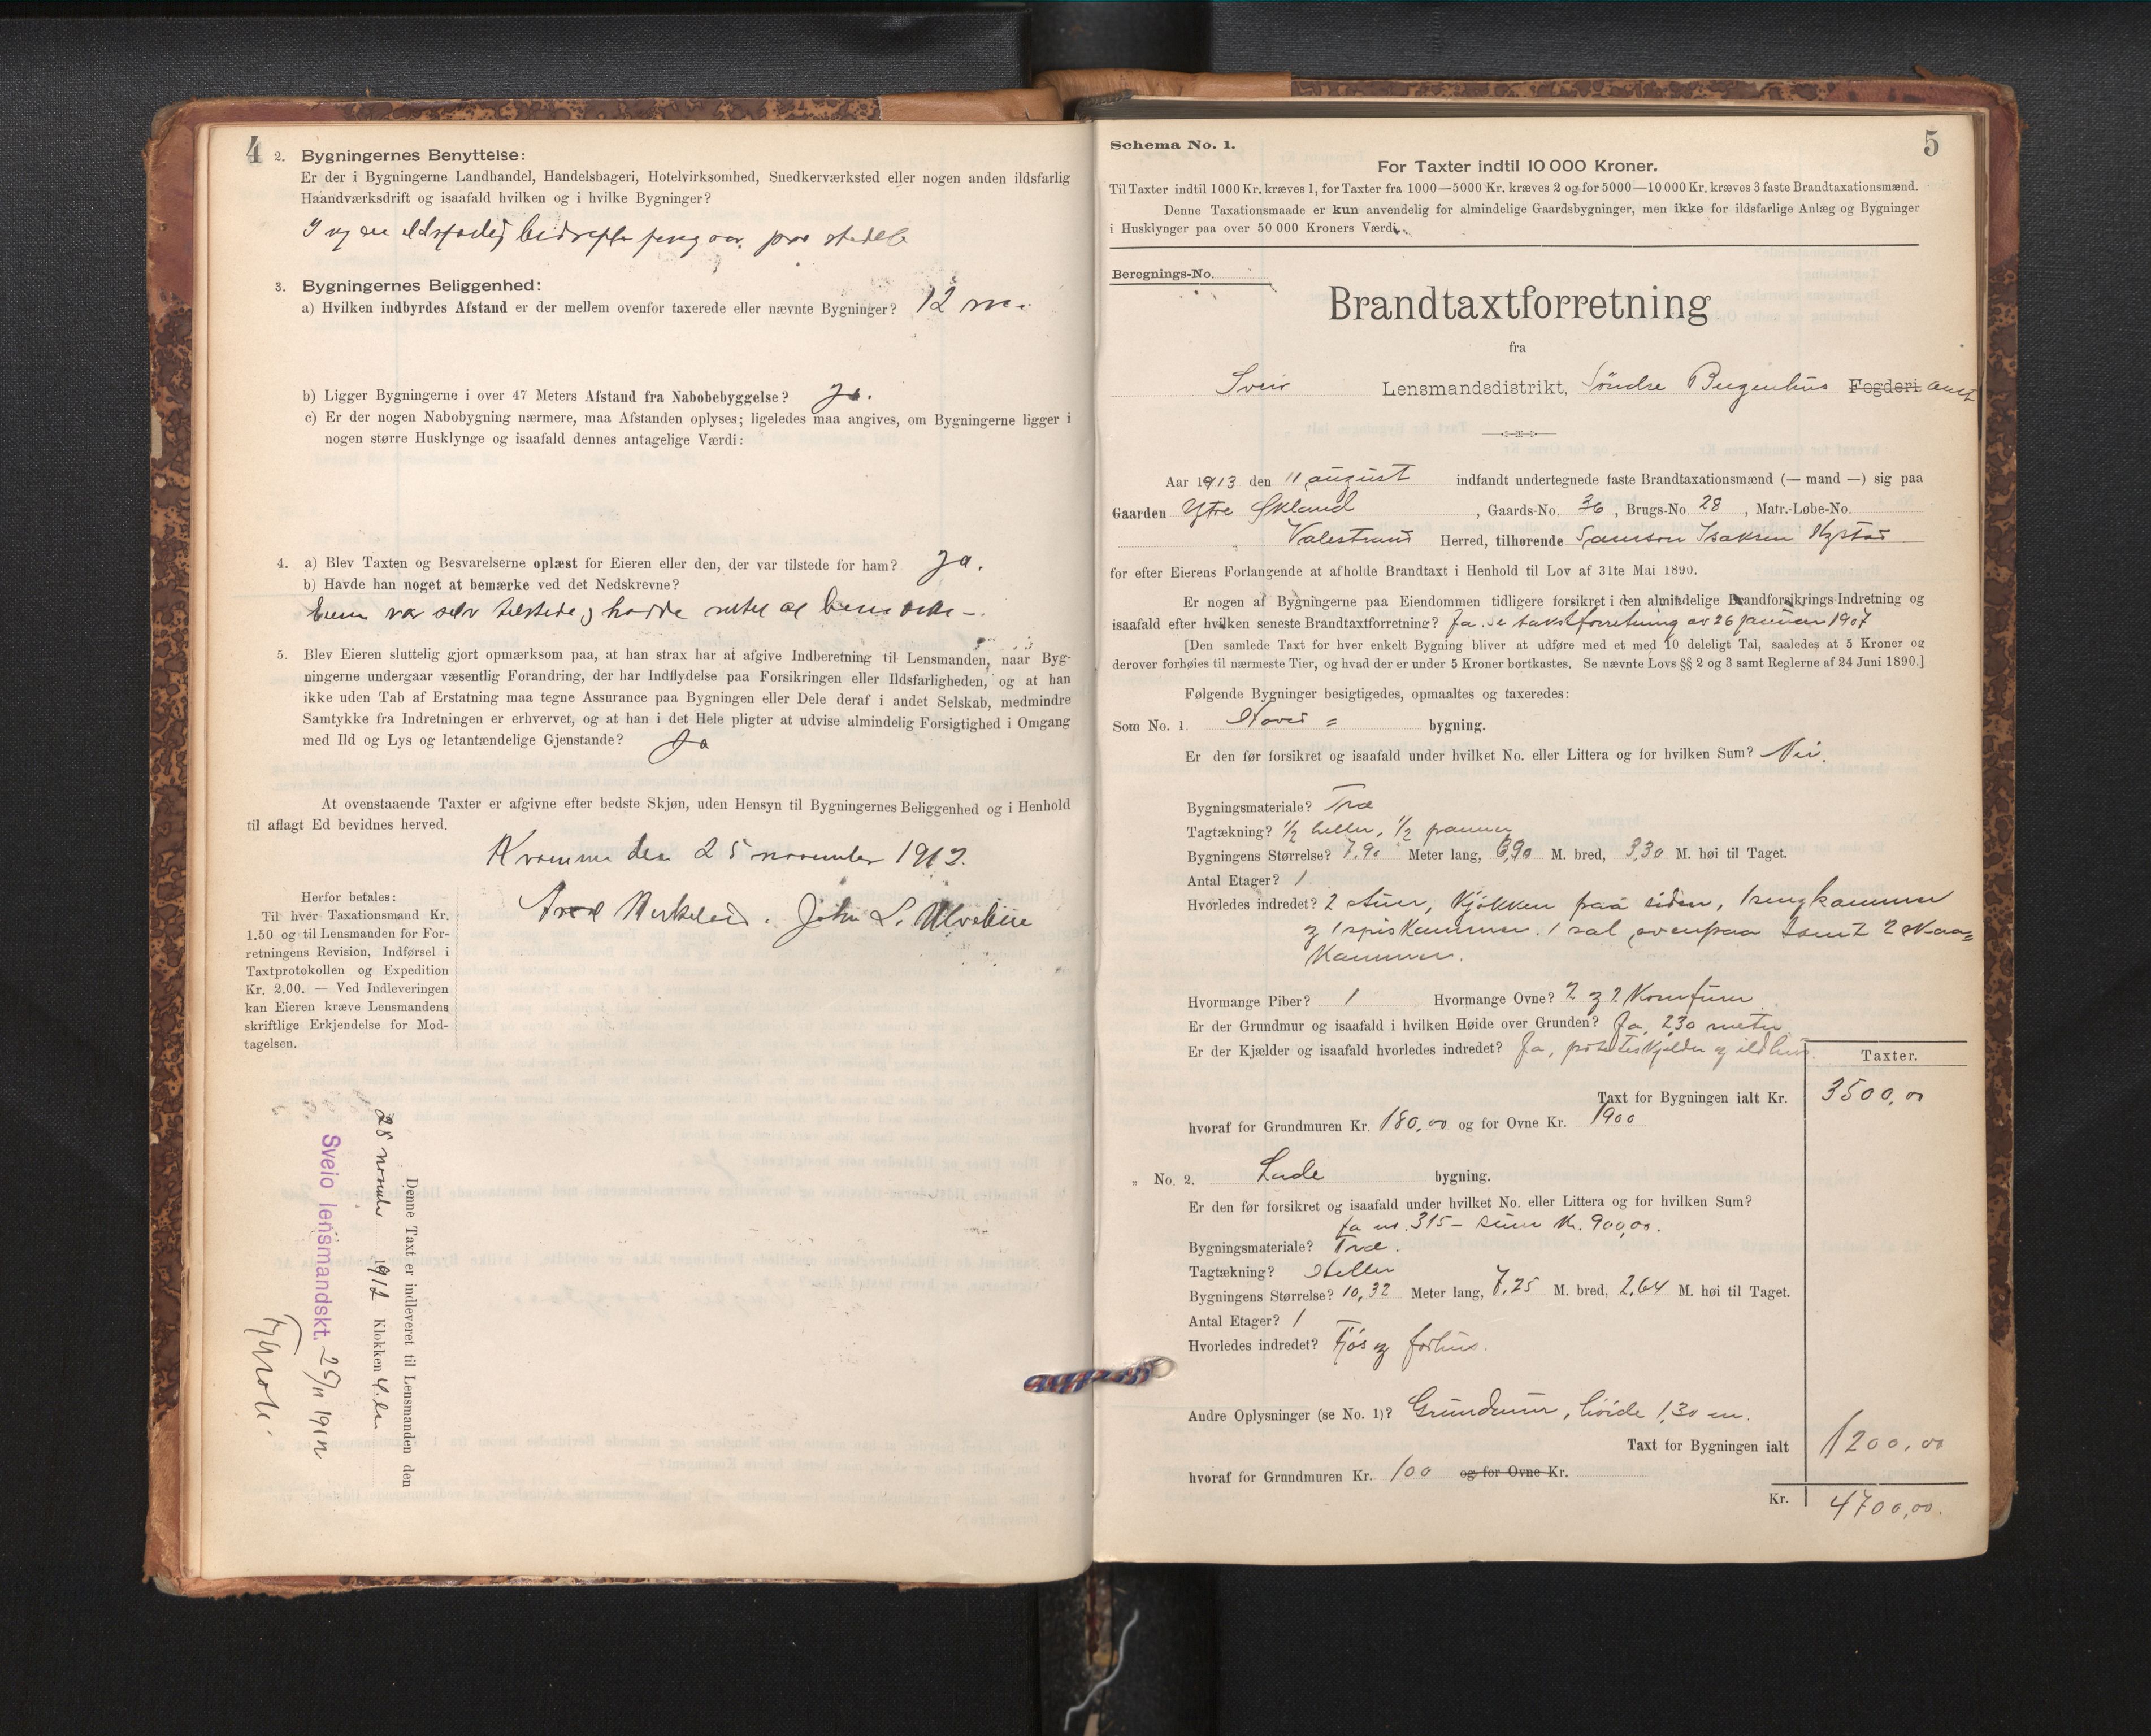 4
2. Bygningernes Benyttelse:
Er der i Bygningerne Landhandel, Handelsbageri, Hotelvirksomhed, Snedkerværksted eller nogen anden ildsfarlig
Haandværksdrift og isaafald hvilken og i hvilke Bygninger?
Ingen ildsfarlig bedrift paa stedet
3. Bygningernes Beliggenhed:
a) Hvilken indbyrdes Afstand er der mellem ovenfor taxerede eller nævnte Bygninger? 12 m.
b) Ligger Bygningerne i over 47 Meters Afstand fra Nabobebyggelse? Ja.
c) Er der nogen Nabobygning nærmere, maa Afstanden oplyses; ligeledes maa angives, om Bygningerne ligger i
nogen større Husklynge og isaafald dennes antagelige Værdi:
4. a) Blev Taxten og Besvarelserne oplæst for Eieren eller den, der var tilstede for ham? Ja.
b) Havde han noget at bemærke ved det Nedskrevne?
Eieren var selv tilstede, hadde intet at bemærke -
5. Blev Eieren sluttelig gjort opmærksom paa, at han strax har at afgive Indberetning til Lensmanden, naar Byg-
ningerne undergaar væsentlig Forandring, der har Indflydelse paa Forsikringen eller Ildsfarligheden, og at han
ikke uden Tab af Erstatning maa tegne Assurance paa Bygningen eller Dele deraf i andet Selskab, medmindre
Samtykke fra Indretningen er erhvervet, og at han i det Hele pligter at udvise almindelig Forsigtighed i Omgang
med Ild og Lys og letantændelige Gjenstande? Ja
At ovenstaaende Taxter er afgivne efter bedste Skjøn, uden Hensyn til Bygningernes Beliggenhed og i Henhold
til aflagt Ed bevidnes herved.
den 25 november 1912.
John L.
Herfor betales:
Til hver Taxationsmand Kr.
1.50 og til Lensmanden for For-
retningens Revision, Indførsel i
Taxtprotokollen og Expedition
Kr. 2.00. — Ved Indleveringen
kan Eieren kræve Lensmandens
skriftlige Erkjendelse for Mod-
tagelsen.
Denne Taxt er indleveret til Lensmanden den
28 november 1912 Klokken 4.
Sveio lensmandskt. 29/11 1912
5
Schema No. 1.
For Taxter indtil 10 000 Kroner.
Til Taxter indtil 1000 Kr. kræves 1, for Taxter fra 1000—5000 Kr. kræves 2 og for 5000—10 000 Kr. kræves 3 faste Brandtaxationsmænd.
Denne Taxationsmaade er kun anvendelig for almindelige Gaardsbygninger, men ikke for ildsfarlige Anlæg og Bygninger
i Husklynger paa over 50 000 Kroners Værdi.
Beregnings-No.
Brandtaxtforretning
fra
Sveio Lensmandsdistrikt, Søndre Bergenhus Fogderi amt
Aar 1913 den 11 august indfandt undertegnede faste Brandtaxationsmænd (— mand —) sig paa
Gaarden Ytre Økland, Gaards-No. 36, Brugs-No. 28, Matr.-Løbe-No.
Valestrand Herred, tilhørende Samson Isaksen Nystad
for efter Eierens Forlangende at afholde Brandtaxt i Henhold til Lov af 31te Mai 1890.
Er nogen af Bygningerne paa Eiendommen tidligere forsikret i den almindelige Brandforsikrings-Indretning og
isaafald efter hvilken seneste Brandtaxtforretning? Ja. Se takstforretning av 26 januar 1907
[Den samlede Taxt for hver enkelt Bygning bliver at udføre med et med 10 deleligt Tal, saaledes at 5 Kroner og
derover forhøies til nærmeste Tier, og hvad der er under 5 Kroner bortkastes. Se nævnte Lovs §§ 2 og 3 samt Reglerne af 24 Juni 1890.]
Følgende Bygninger besigtigedes, opmaaltes og taxeredes:
Som No. 1. Hoved = bygning.
Er den før forsikret og isaafald under hvilket No. eller Littera og for hvilken Sum? Nei.
Bygningsmateriale? Træ
Tagtækning? 1/2 heller, 1/2 panner
Bygningens Størrelse? 7,90 Meter lang, 6,90 M. bred, 3,30 M. høi til Taget.
Antal Etager? 1
Hvorledes indredet? 2 stuer, kjøkken paa siden, 1 sengkammer
og 1 spiskammer. 1 sal ovenpaa samt 2 skraa=
kammer.
Hvormange Piber? 1 Hvormange Ovne? 2 og 2 komfurer
Er der Grundmur og isaafald i hvilken Høide over Grunden? Ja, 2,30 meter
Er der Kjælder og isaafald hvorledes indredet? Ja, poteteskjelder og ildhus.
Taxter.
Taxt for Bygningen ialt Kr. 3500,00
hvoraf for Grundmuren Kr. 180,00 og for Ovne Kr. 1900
" No. 2. Lade bygning.
Er den før forsikret og isaafald under hvilket No. eller Littera og for hvilken Sum?
Ja no. 315 - sum kr. 900,00.
Bygningsmateriale? Træ.
Tagtækning? Heller
Bygningens Størrelse? 10,32 Meter lang, 7,25 M. bred, 2,64 M. høi til Taget.
Antal Etager? 1
Hvorledes indredet? Fjøs og forhus.
Andre Oplysninger (se No. 1)? Grundmur, høide 1,30 m.
Taxt for Bygningen ialt 1200,00
hvoraf for Grundmuren Kr. 100 og for Ovne Kr.
Kr. 4700,00.